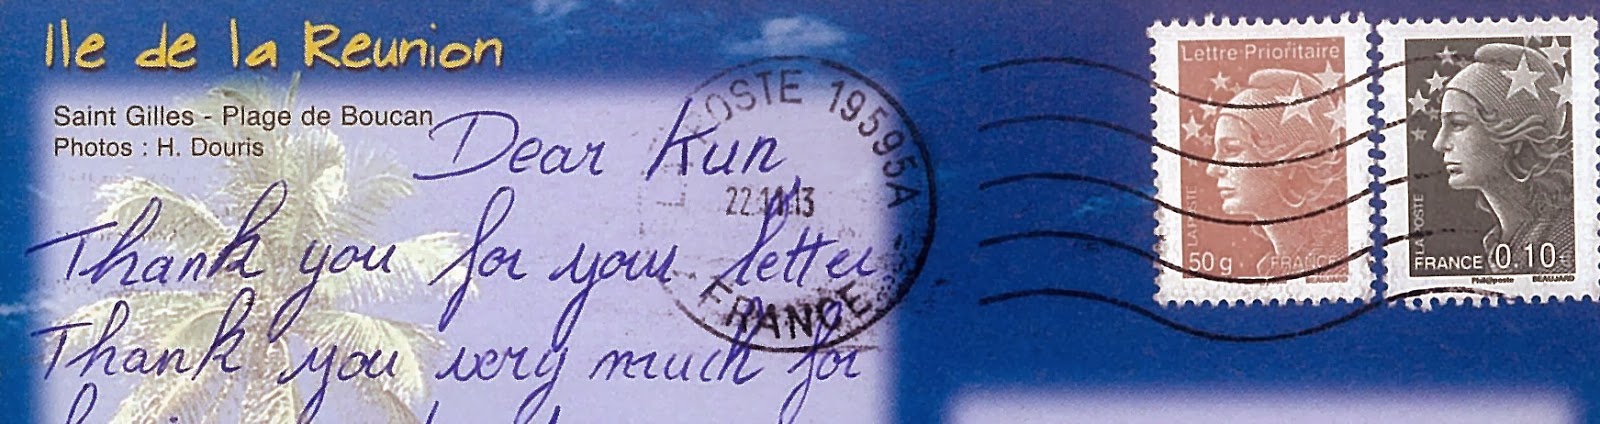 Ile de la Reunion
Saint Gilles - Plage de Boucan
Photos : H. Douris
Dear Kun
Thank you for your letter
Thank you very much for
POSTE 19595A
22.11.13
FRANCE
Lettre Prioritaire
LA POSTE
50 g
FRANCE
LA POSTE
FRANCE 0.10€
Phil@poste BEAUJARD